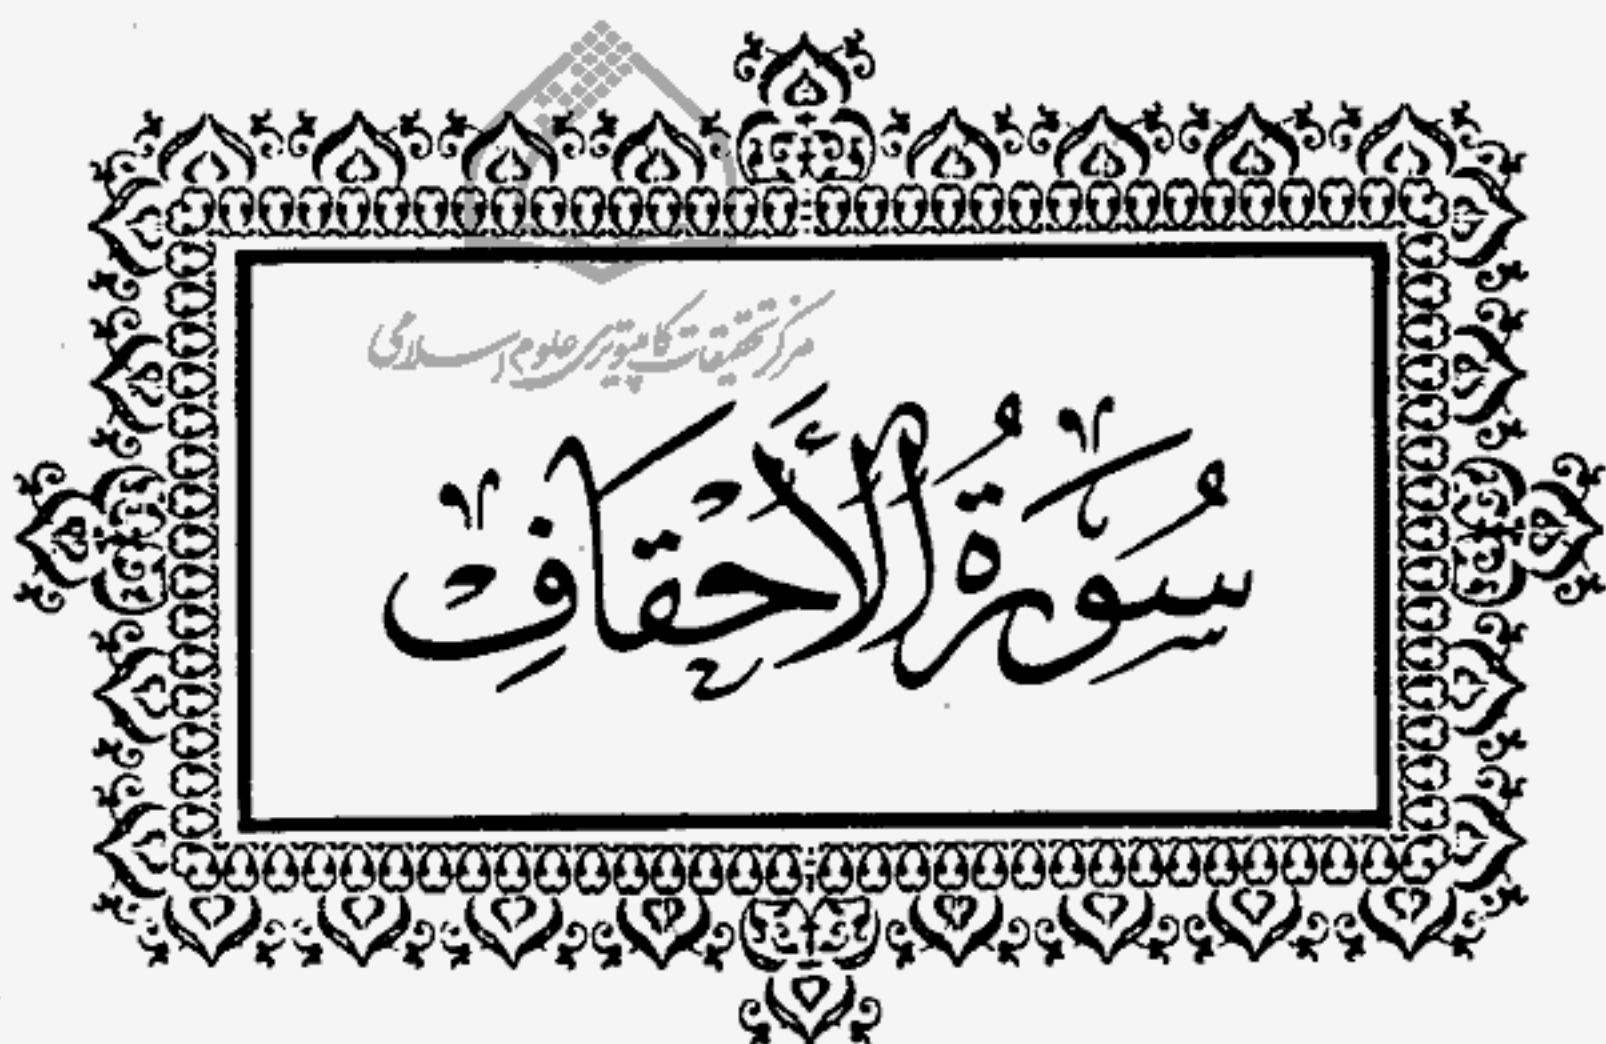 مرکز تحقیقات کامپیوتری علوم اسلامی
سُورَةُ الأَحْقَافِ